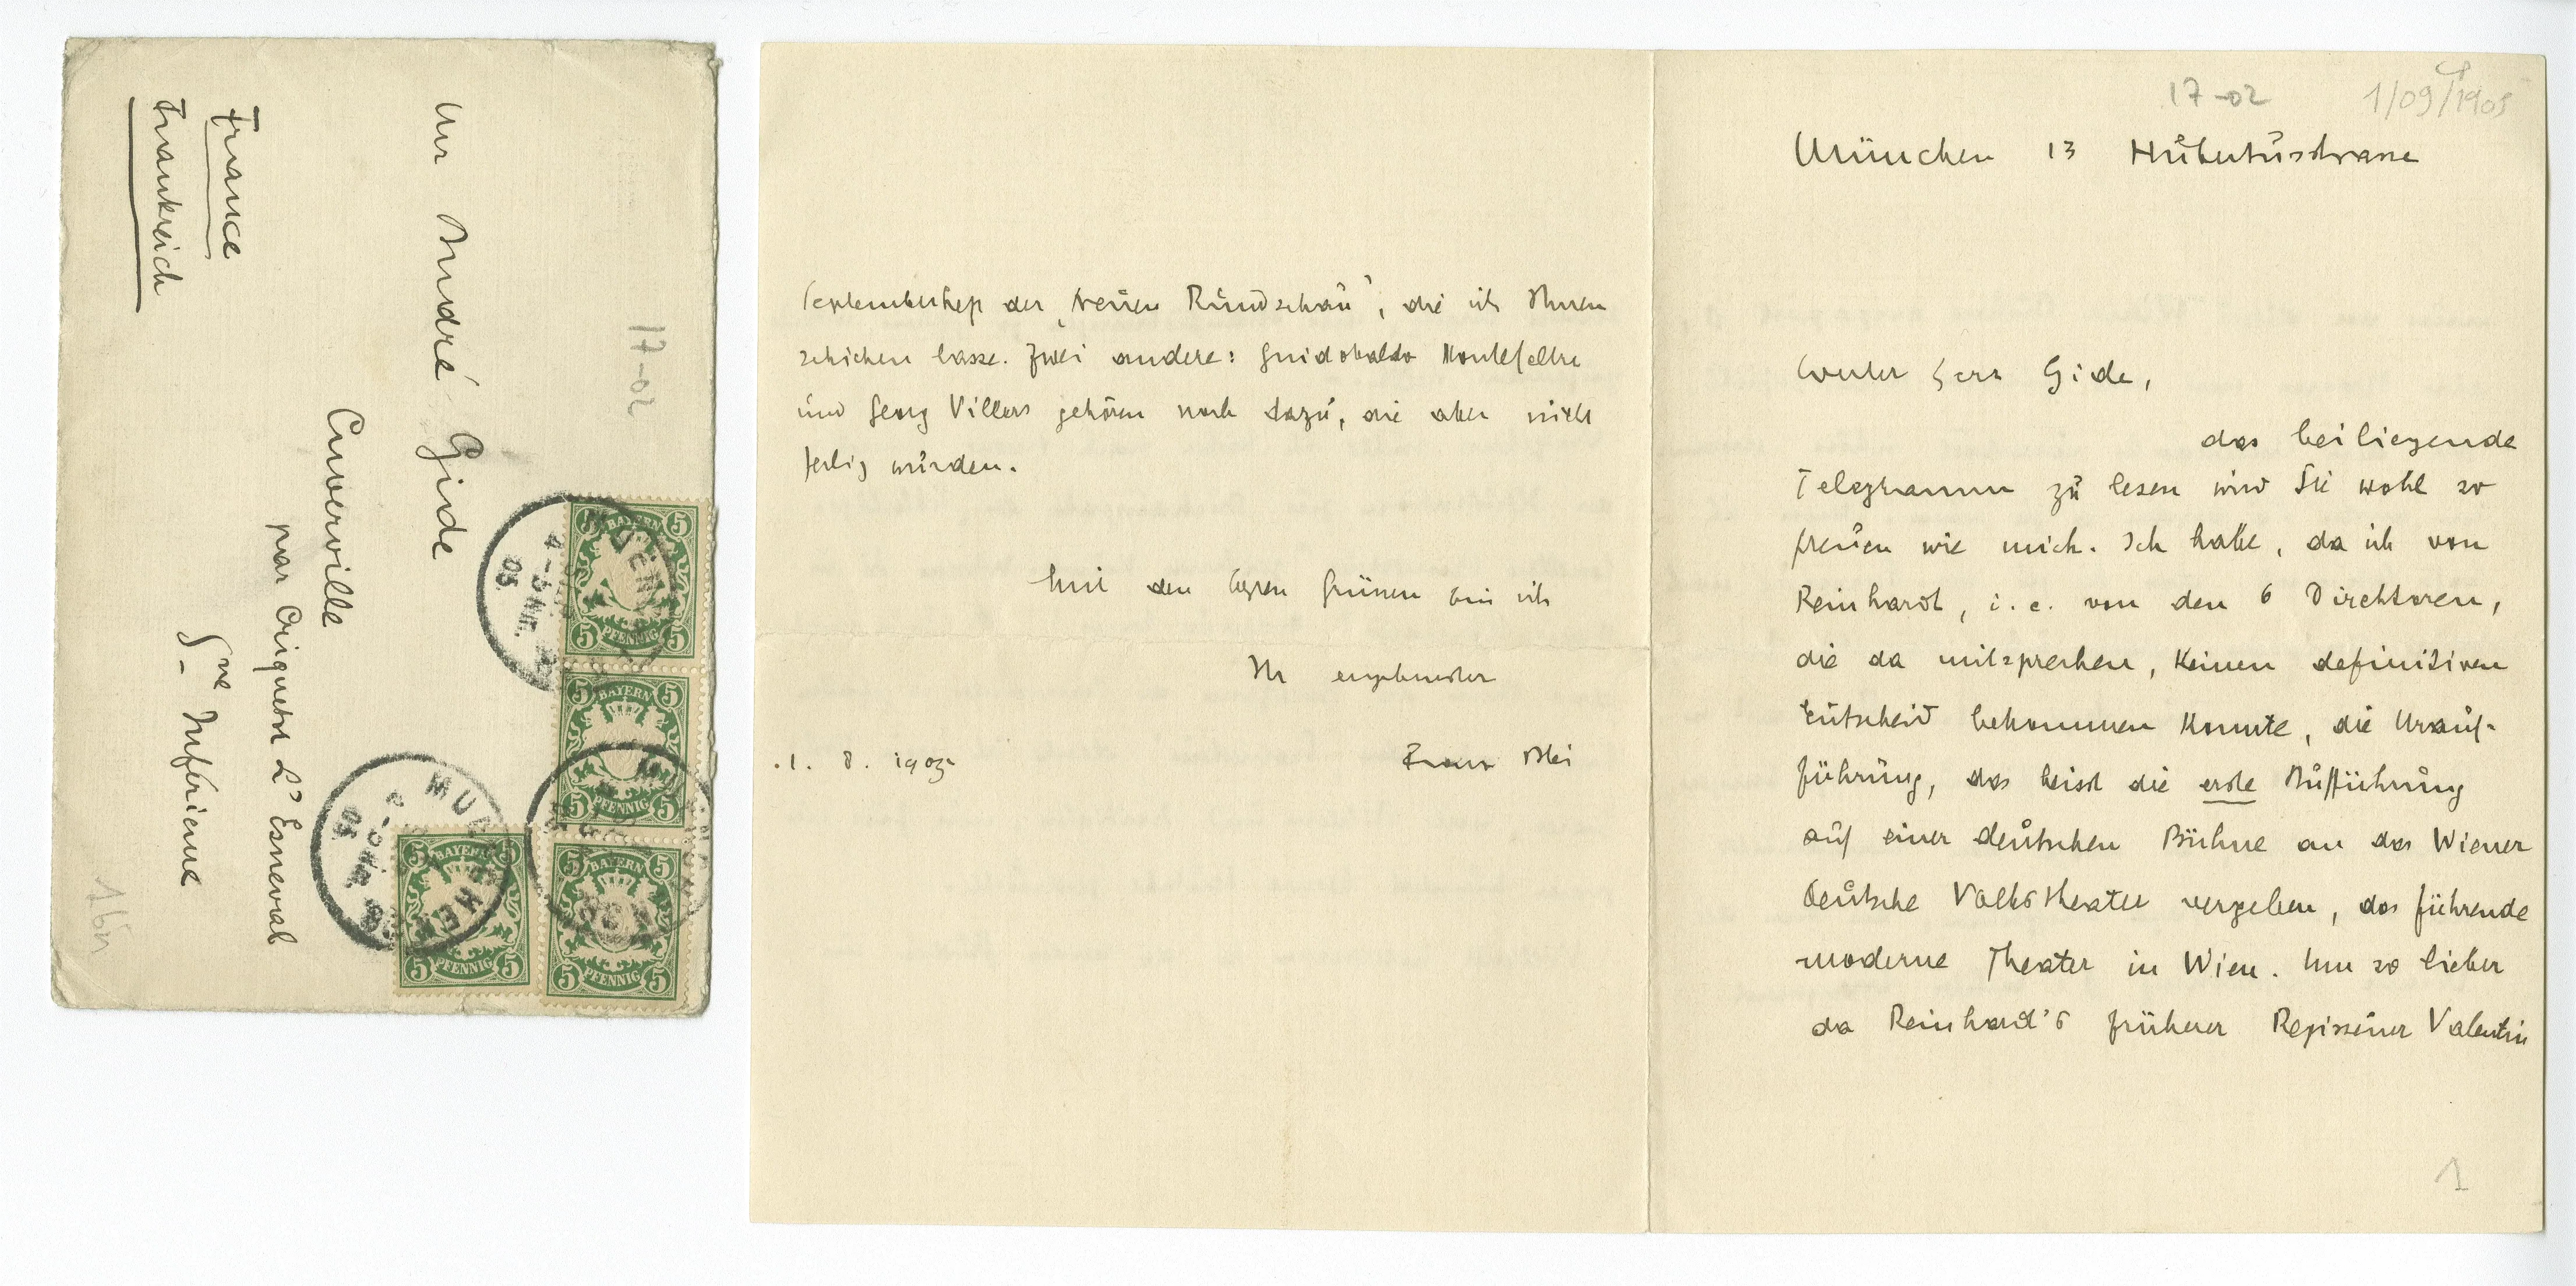 Mr André Gide
Cuverville
par Criquetot L'Esneval
Sne Inférieure
France
Frankreich
17-02
BAYERN
5 5
PFENNIG
5 5
BAYERN
5 5
PFENNIG
5 5
BAYERN
5 5
PFENNIG
5 5
BAYERN
5 5
PFENNIG
5 5
17-02 1/09/1905
München 13 Hubertusstrasse
Werter Herr Gide,
das beiliegende
Telegramm zu lesen wird Sie wohl so
freuen wie mich. Ich habe, da ich von
Reinhardt, i.e. von den 6 Direktoren,
die da mitsprechen, keinen definitiven
Entscheid bekommen konnte, die Urauf-
führung, das heisst die erste Aufführung
auf einer deutschen Bühne an das Wiener
deutsche Volkstheater vergeben, das führende
moderne Theater in Wien. Um so lieber
da Reinhard's früherer Regisseur Valentin
1
Septemberheft der „Neuen Rundschau", die ich Ihnen
schicken lasse. Zwei andere: Guidobaldo Montefeltre
und Georg Villers gehören noch dazu, die aber nicht
fertig wurden.
Mit den besten Grüssen bin ich
Ihr ergebenster
.1. 8. 1905 Franz Blei